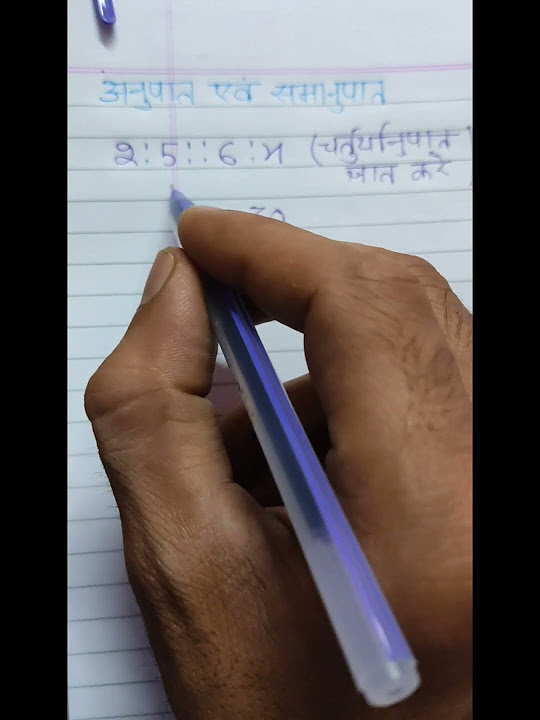 अनुपात एवं समानुपात
2:5::6:x (चतुर्थानुपात
ज्ञात करे )
30